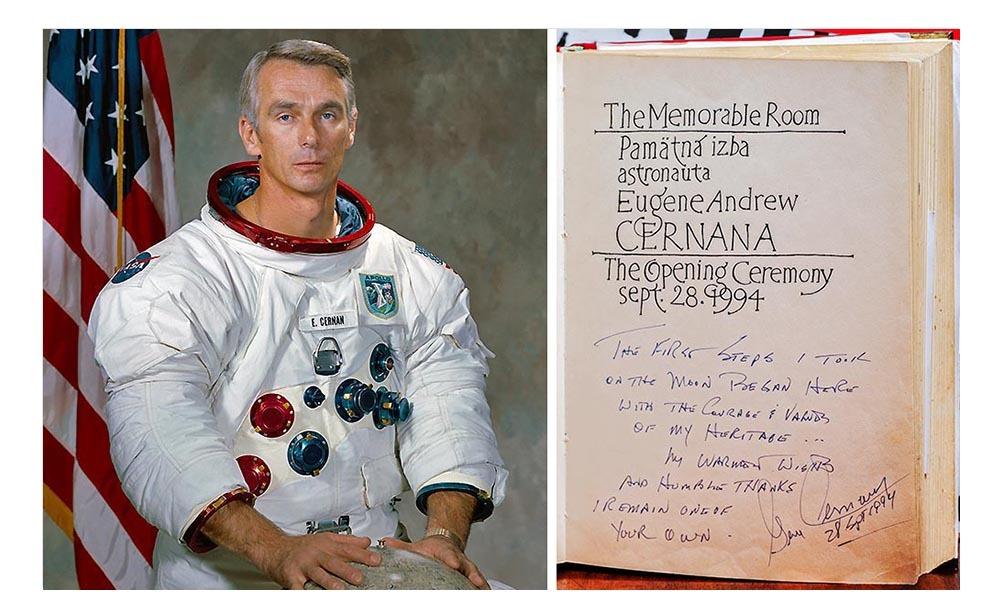 NASA
APOLLO
E. CERNAN
The Memorable Room
Pamätná izba
astronauta
Eugene Andrew
CERNANA
The Opening Ceremony
sept. 28. 1994
THE FIRST STEPS I TOOK
ON THE MOON BEGAN HERE
WITH THE COURAGE & VALUES
OF MY HERITAGE ...
MY WARMEST WISHES
AND HUMBLE THANKS
I REMAIN ONE OF
YOUR OWN.
Gene Cernan
28 Sept 1994